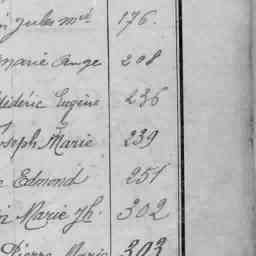 Jules Md 176.
Marie Ange 208
Eugène 236
Joseph Marie 239
Edmond 251
Marie Jh. 302
Pierre Marie 303